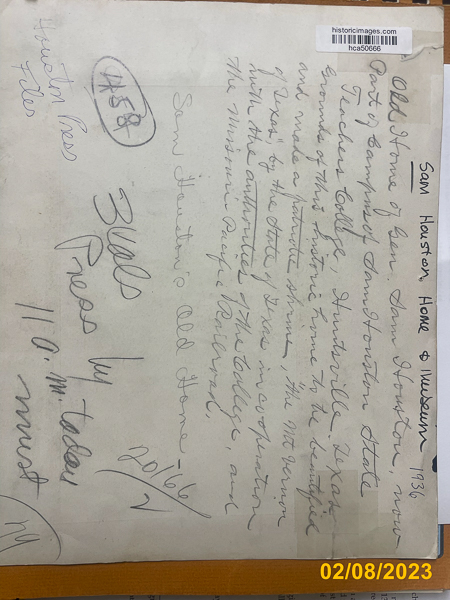 historicimages.com
hca50666
Sam Houston, Home & Museum 1936
Old Home of Gen. Sam Houston, now
Part of Campus of Sam Houston State
Teachers College, Huntsville, Texas.
Grounds of this historic home to be beautified
and made a patriotic shrine, "the Mt Vernon
of Texas" by the State of Texas in cooperation
with the authorities of the College, and
the Missouri Pacific Railroad.
Sam Houston's Old Home
458
Houston Press
Files
3 Vals
Press by
11 a.m. today
must
02/08/2023